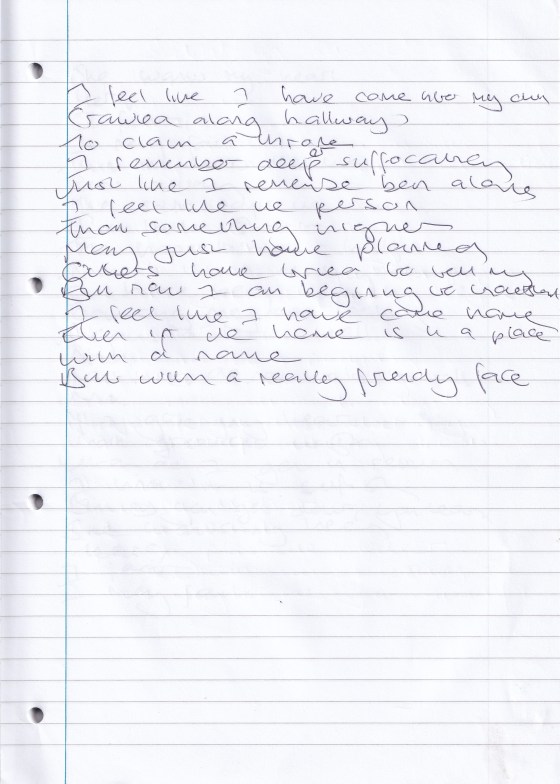 I feel like I have come into my own
Crawled along hallways
To claim a throne
I remember deep suffocating
Just like I remember being alone
I feel like the person
than something higher
May just have planned
Others have tried to tell my
But now I am begining to understand
I feel like I have come home
Even if the home is in a place
with a name
But with a really friendly face